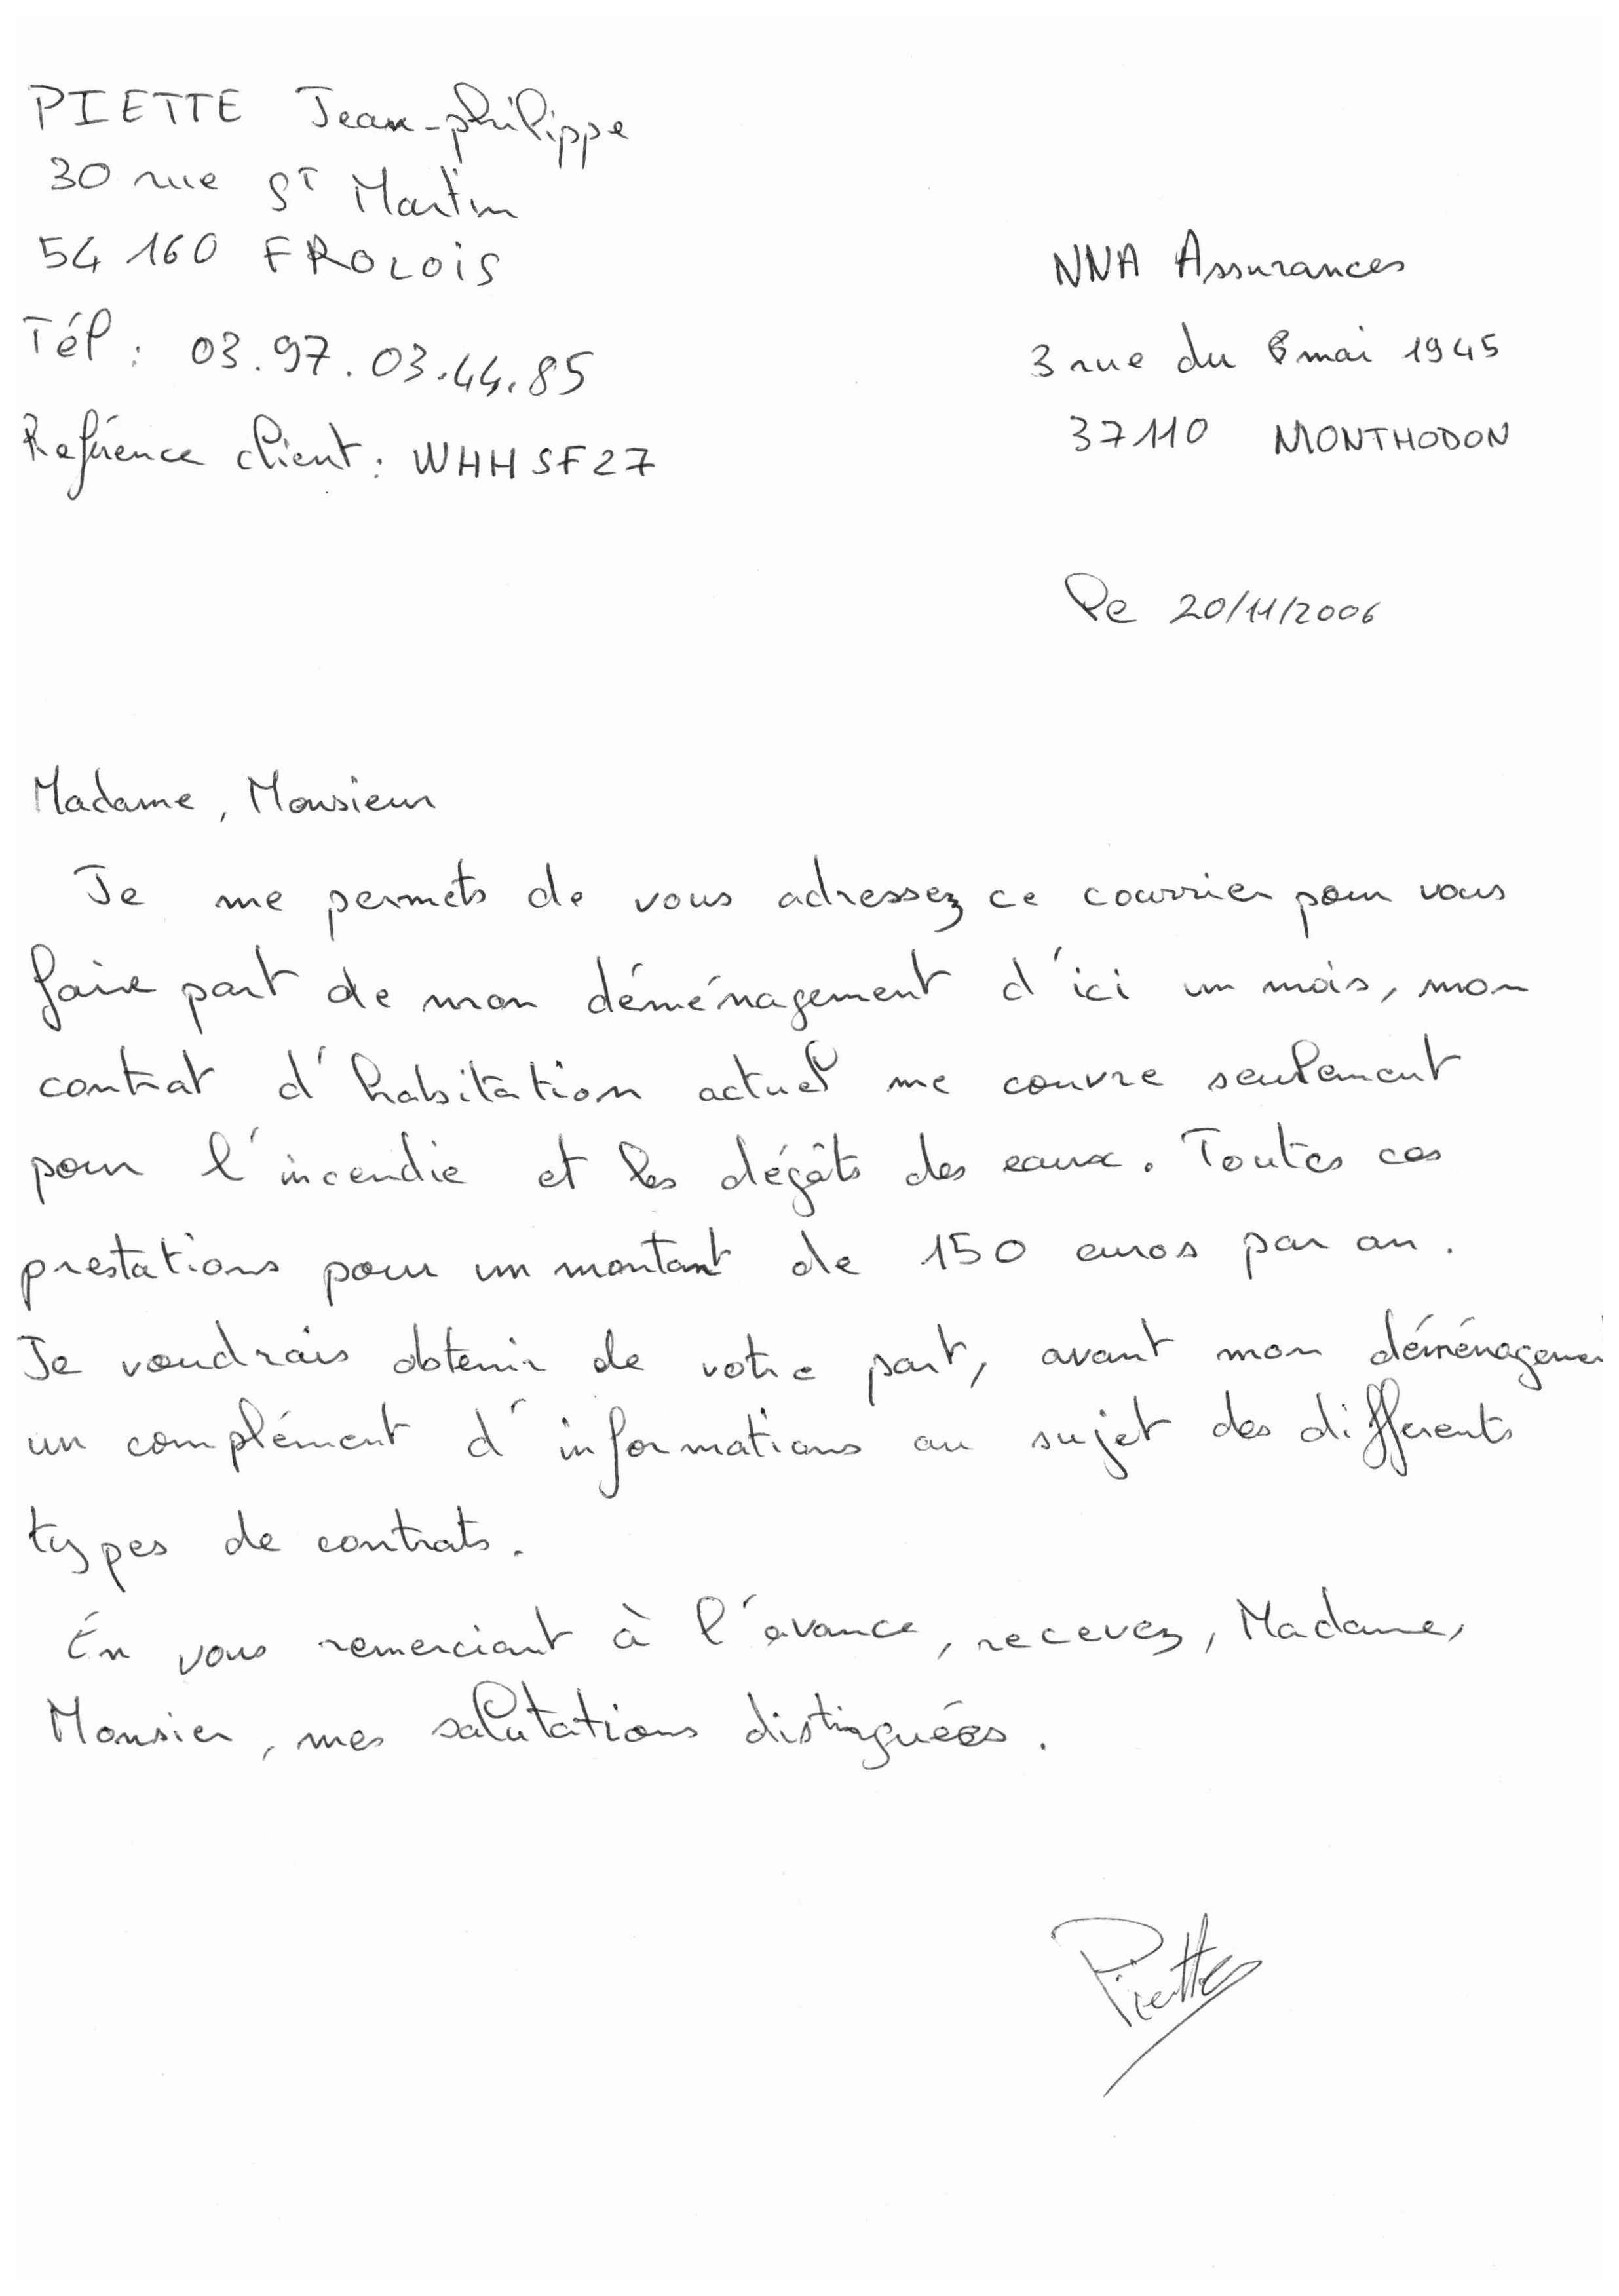 PIETTE Jean-philippe
30 rue St Martin
54 160 FROLOIS
Tél : 03.97.03.44.85
Reférence client : WHHSF27
NNA Assurances
3 rue du 8 mai 1945
37110 MONTHODON
le 20/11/2006
Madame, Monsieur
Je me permets de vous adressez ce courrier pour vous
faire part de mon déménagement d'ici un mois, mon
contrat d'habitation actuel me couvre seulement
pour l'incendie et les dégâts des eaux. Toutes ces
prestations pour un montant de 150 euros par an.
Je voudrais obtenir de votre part, avant mon déménagemen
un complément d'informations au sujet des différents
types de contrats.
En vous remerciant à l'avance, recevez, Madame,
Monsier, mes salutations distinguées.
Piette